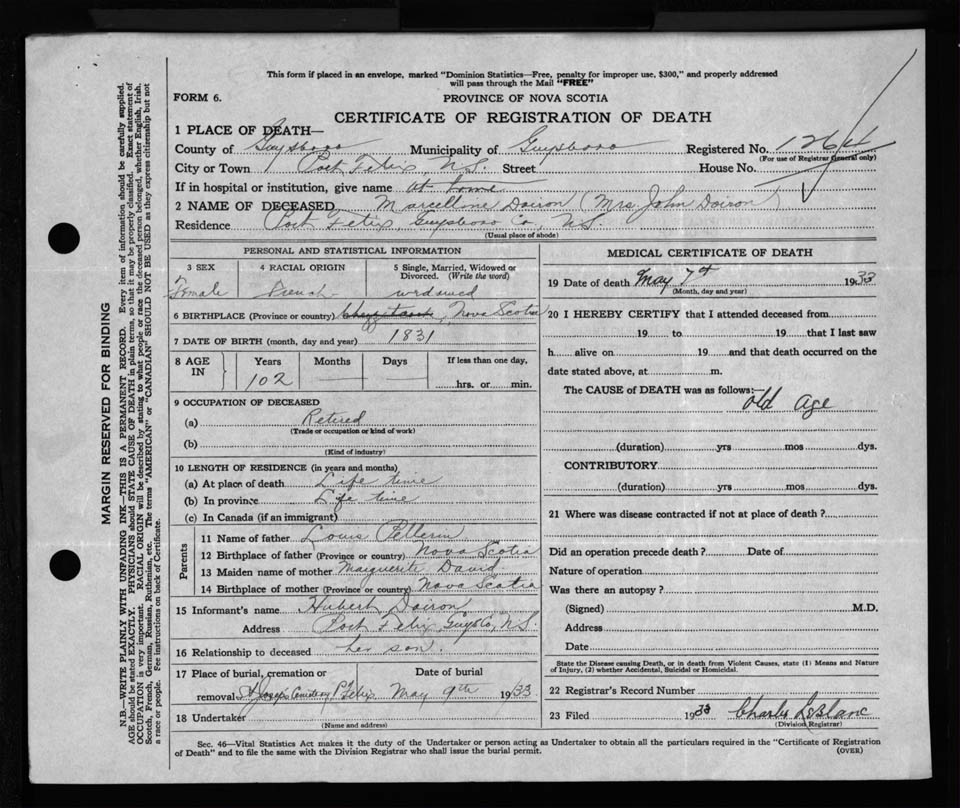 This form if placed in an envelope, marked "Dominion Statistics—Free, penalty for improper use, $300," and properly addressed
will pass through the Mail "FREE"
FORM 6.
PROVINCE OF NOVA SCOTIA
CERTIFICATE OF REGISTRATION OF DEATH
1 PLACE OF DEATH—
County of Guysboro Municipality of Guysboro Registered No. 1264
(For use of Registrar General only)
City or Town Port Felix N.S. Street House No.
If in hospital or institution, give name at home
2 NAME OF DECEASED Marcelline Doiron (Mrs. John Doiron)
Residence Port Felix, Guysboro Co, N.S.
(Usual place of abode)
PERSONAL AND STATISTICAL INFORMATION
3 SEX 4 RACIAL ORIGIN 5 Single, Married, Widowed or Divorced. (Write the word)
Female French widowed
6 BIRTHPLACE (Province or country) Nova Scotia
7 DATE OF BIRTH (month, day and year) 1831
8 AGE IN Years Months Days If less than one day,
102 — — hrs. or min.
9 OCCUPATION OF DECEASED
(a) Retired
(Trade or occupation or kind of work)
(b)
(Kind of industry)
10 LENGTH OF RESIDENCE (in years and months)
(a) At place of death Life time
(b) In province Life time
(c) In Canada (if an immigrant)
Parents
11 Name of father Louis Pellerin
12 Birthplace of father (Province or country) Nova Scotia
13 Maiden name of mother Marguerite David
14 Birthplace of mother (Province or country) Nova Scotia
15 Informant's name Hubert Doiron
Address Port Felix, Guys Co, N.S.
16 Relationship to deceased her son.
17 Place of burial, cremation or Date of burial
removal St Josephs Cemetery Pt Felix May 9th 1933
18 Undertaker
(Name and address)
MEDICAL CERTIFICATE OF DEATH
19 Date of death May 7th 1933
(Month, day and year)
20 I HEREBY CERTIFY that I attended deceased from
19 to 19 that I last saw
h alive on 19 and that death occurred on the
date stated above, at m.
The CAUSE of DEATH was as follows:—
old age
(duration) yrs mos dys.
CONTRIBUTORY
(duration) yrs mos dys.
21 Where was disease contracted if not at place of death?
Did an operation precede death? Date of
Nature of operation
Was there an autopsy?
(Signed) M.D.
Address
Date
State the Disease causing Death, or in death from Violent Causes, state (1) Means and Nature
of Injury, (2) whether Accidental, Suicidal or Homicidal.
22 Registrar's Record Number
23 Filed 1933 Charles LeBlanc
(Division Registrar)
Sec. 46—Vital Statistics Act makes it the duty of the Undertaker or person acting as Undertaker to obtain all the particulars required in the "Certificate of Registration
of Death" and to file the same with the Division Registrar who shall issue the burial permit.
(OVER)
MARGIN RESERVED FOR BINDING
N.B.—WRITE PLAINLY WITH UNFADING INK—THIS IS A PERMANENT RECORD. Every item of information should be carefully supplied.
AGE should be stated EXACTLY. PHYSICIANS should STATE CAUSE OF DEATH in plain terms, so that it may be properly classified. Exact statement of
OCCUPATION is very important. RACIAL ORIGIN will be described by stating to what people or race the deceased person belonged, whether English, Irish,
Scotch, French, German, Russian, Ruthenian, etc. The terms "AMERICAN" or "CANADIAN" SHOULD NOT BE USED as they express citizenship but not
a race or people. Fee instructions on back of Certificate.